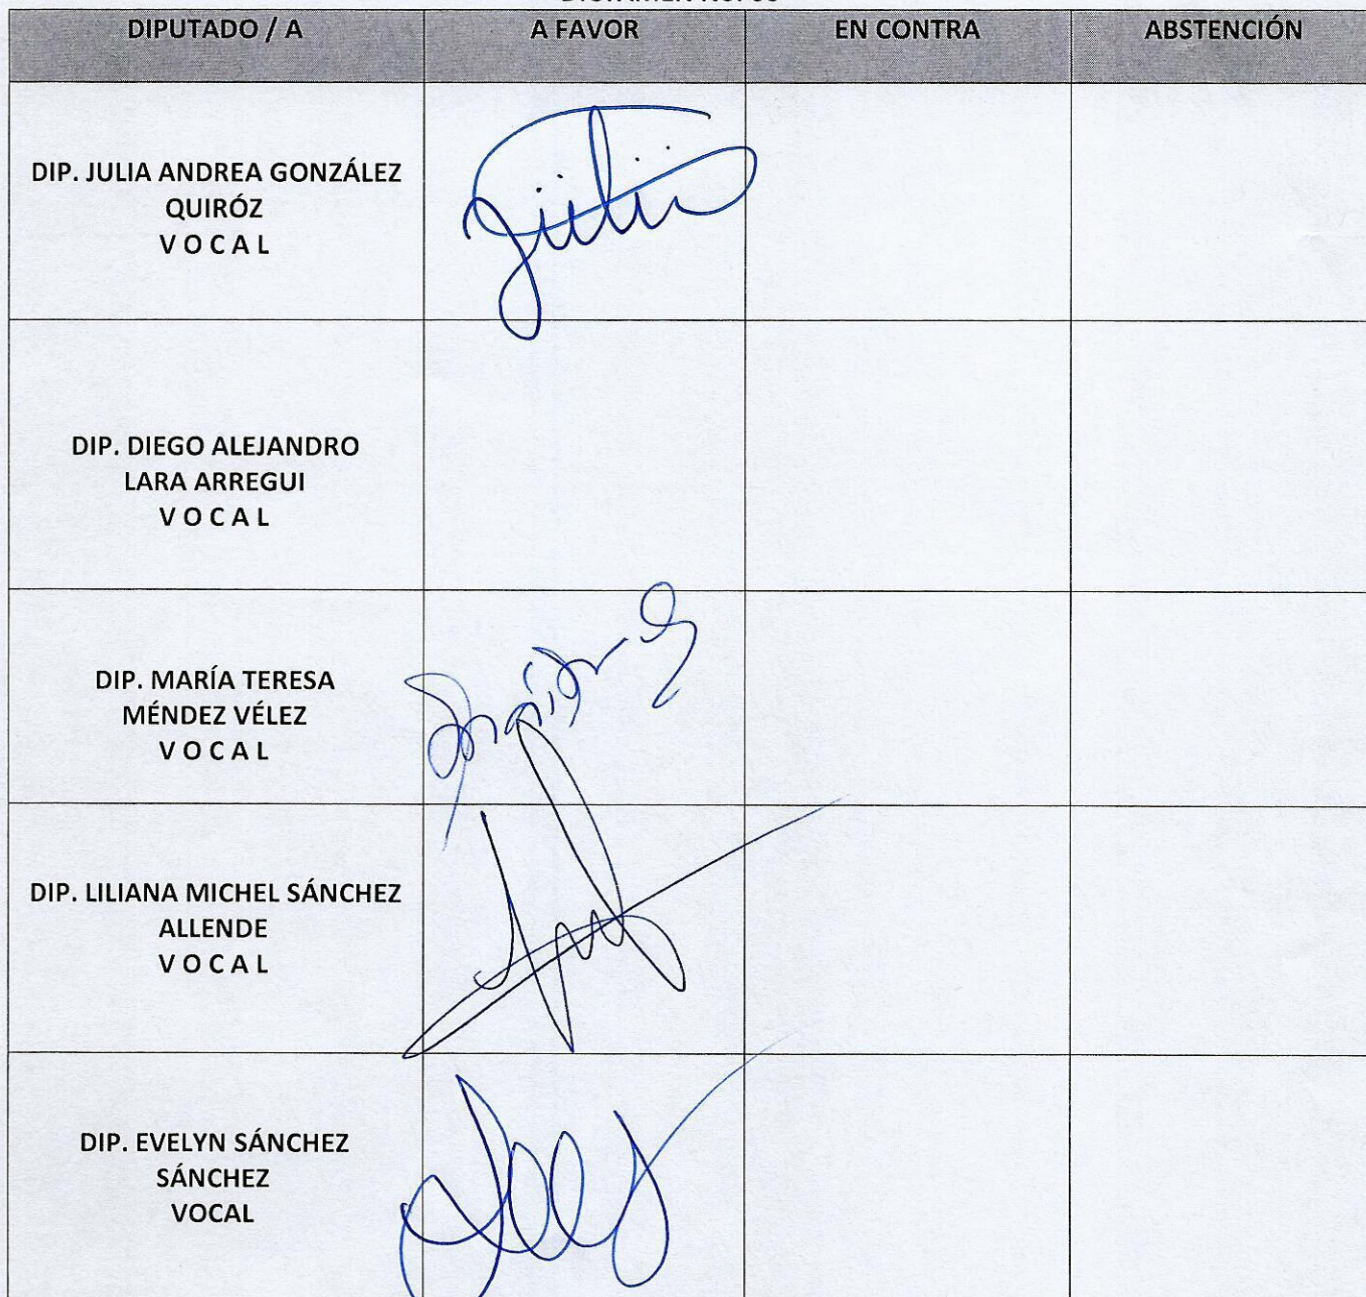 DIPUTADO / A
A FAVOR
EN CONTRA
ABSTENCIÓN
DIP. JULIA ANDREA GONZÁLEZ
QUIRÓZ
V O C A L
DIP. DIEGO ALEJANDRO
LARA ARREGUI
V O C A L
DIP. MARÍA TERESA
MÉNDEZ VÉLEZ
V O C A L
DIP. LILIANA MICHEL SÁNCHEZ
ALLENDE
V O C A L
DIP. EVELYN SÁNCHEZ
SÁNCHEZ
VOCAL